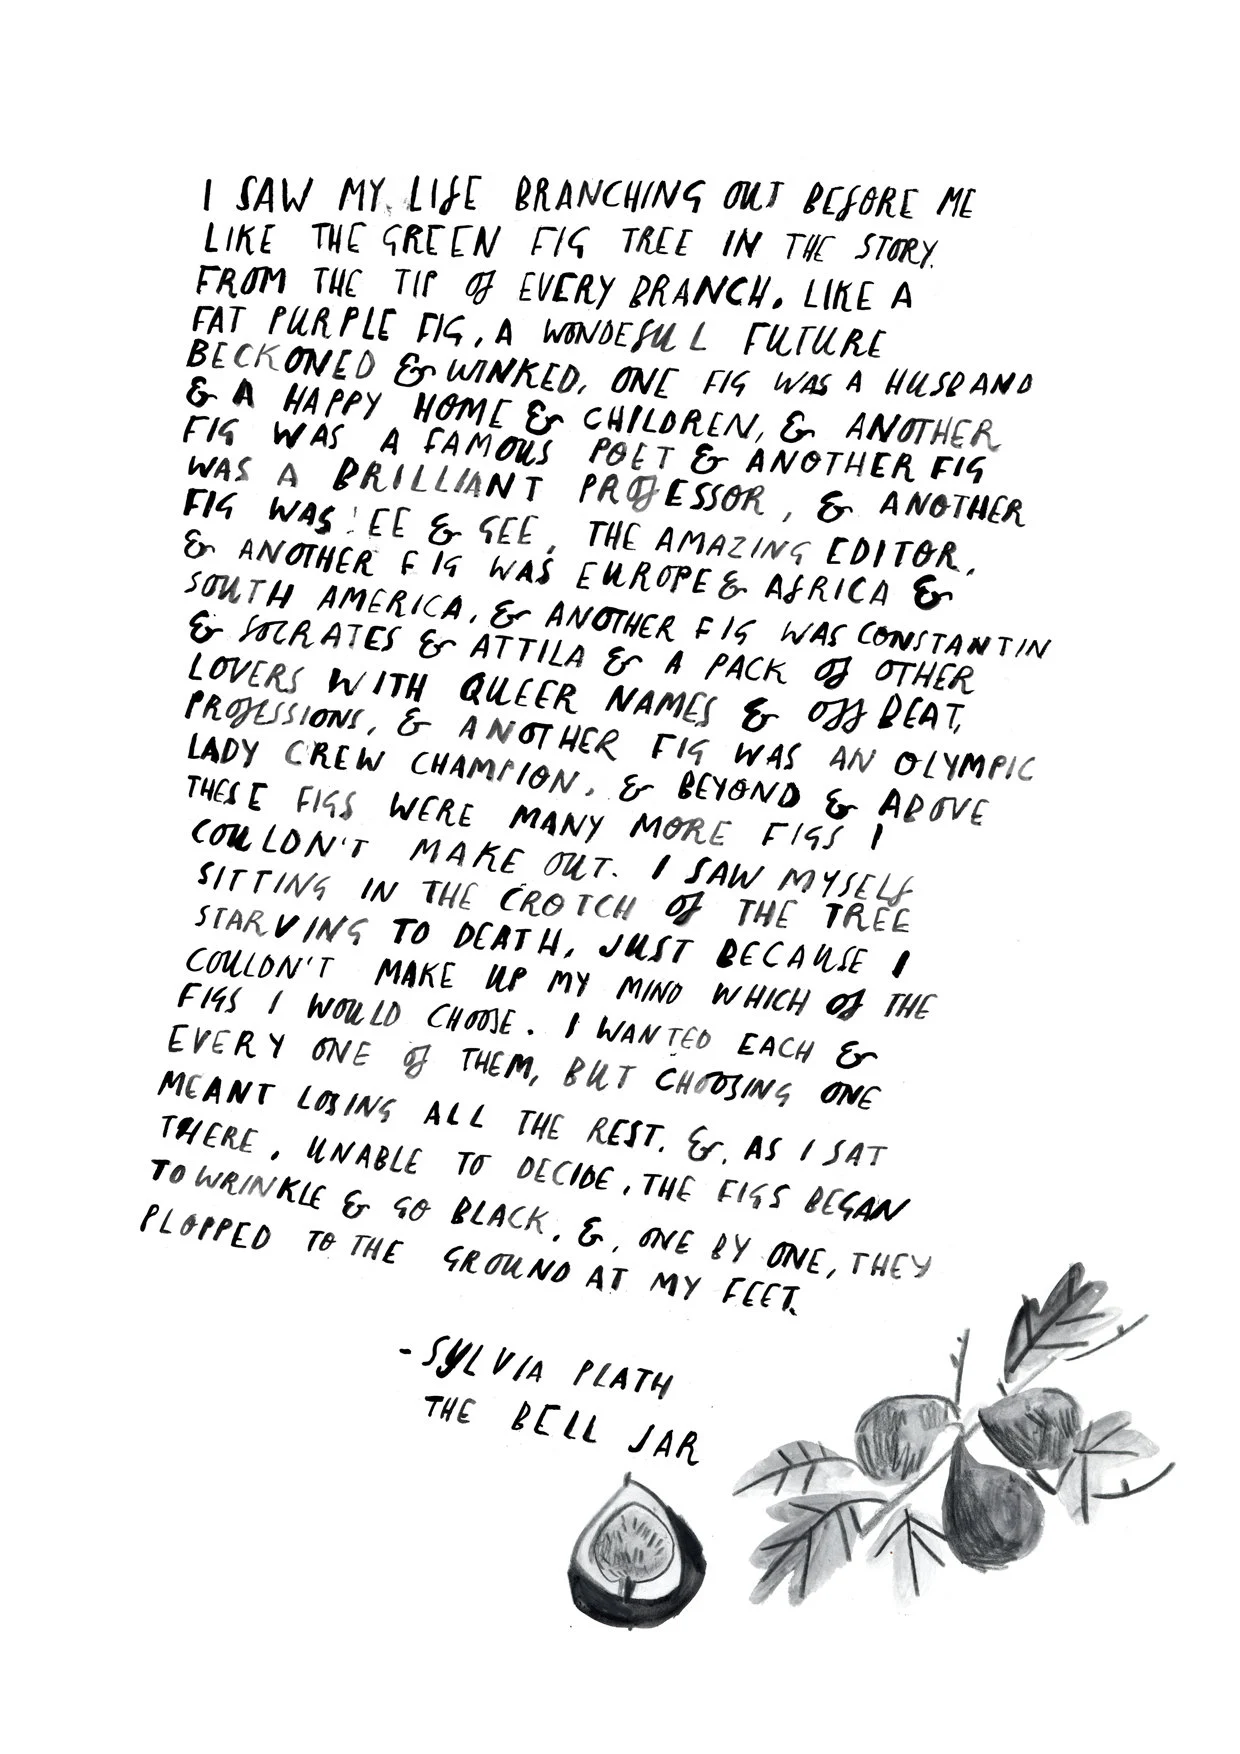 I SAW MY LIFE BRANCHING OUT BEFORE ME
LIKE THE GREEN FIG TREE IN THE STORY.
FROM THE TIP OF EVERY BRANCH, LIKE A
FAT PURPLE FIG, A WONDEFUL FUTURE
BECKONED & WINKED, ONE FIG WAS A HUSBAND
& A HAPPY HOME & CHILDREN, & ANOTHER
FIG WAS A FAMOUS POET & ANOTHER FIG
WAS A BRILLIANT PROFESSOR, & ANOTHER
FIG WAS EE & GEE, THE AMAZING EDITOR,
& ANOTHER FIG WAS EUROPE & AFRICA &
SOUTH AMERICA, & ANOTHER FIG WAS CONSTANTIN
& SOCRATES & ATTILA & A PACK OF OTHER
LOVERS WITH QUEER NAMES & OFF BEAT,
PROFESSIONS, & ANOTHER FIG WAS AN OLYMPIC
LADY CREW CHAMPION, & BEYOND & ABOVE
THESE FIGS WERE MANY MORE FIGS I
COULDN'T MAKE OUT. I SAW MYSELF
SITTING IN THE CROTCH OF THE TREE
STARVING TO DEATH, JUST BECAUSE I
COULDN'T MAKE UP MY MIND WHICH OF THE
FIGS I WOULD CHOOSE. I WANTED EACH &
EVERY ONE OF THEM, BUT CHOOSING ONE
MEANT LOSING ALL THE REST. &, AS I SAT
THERE, UNABLE TO DECIDE, THE FIGS BEGAN
TO WRINKLE & GO BLACK, &, ONE BY ONE, THEY
PLOPPED TO THE GROUND AT MY FEET.
- SYLVIA PLATH
THE BELL JAR